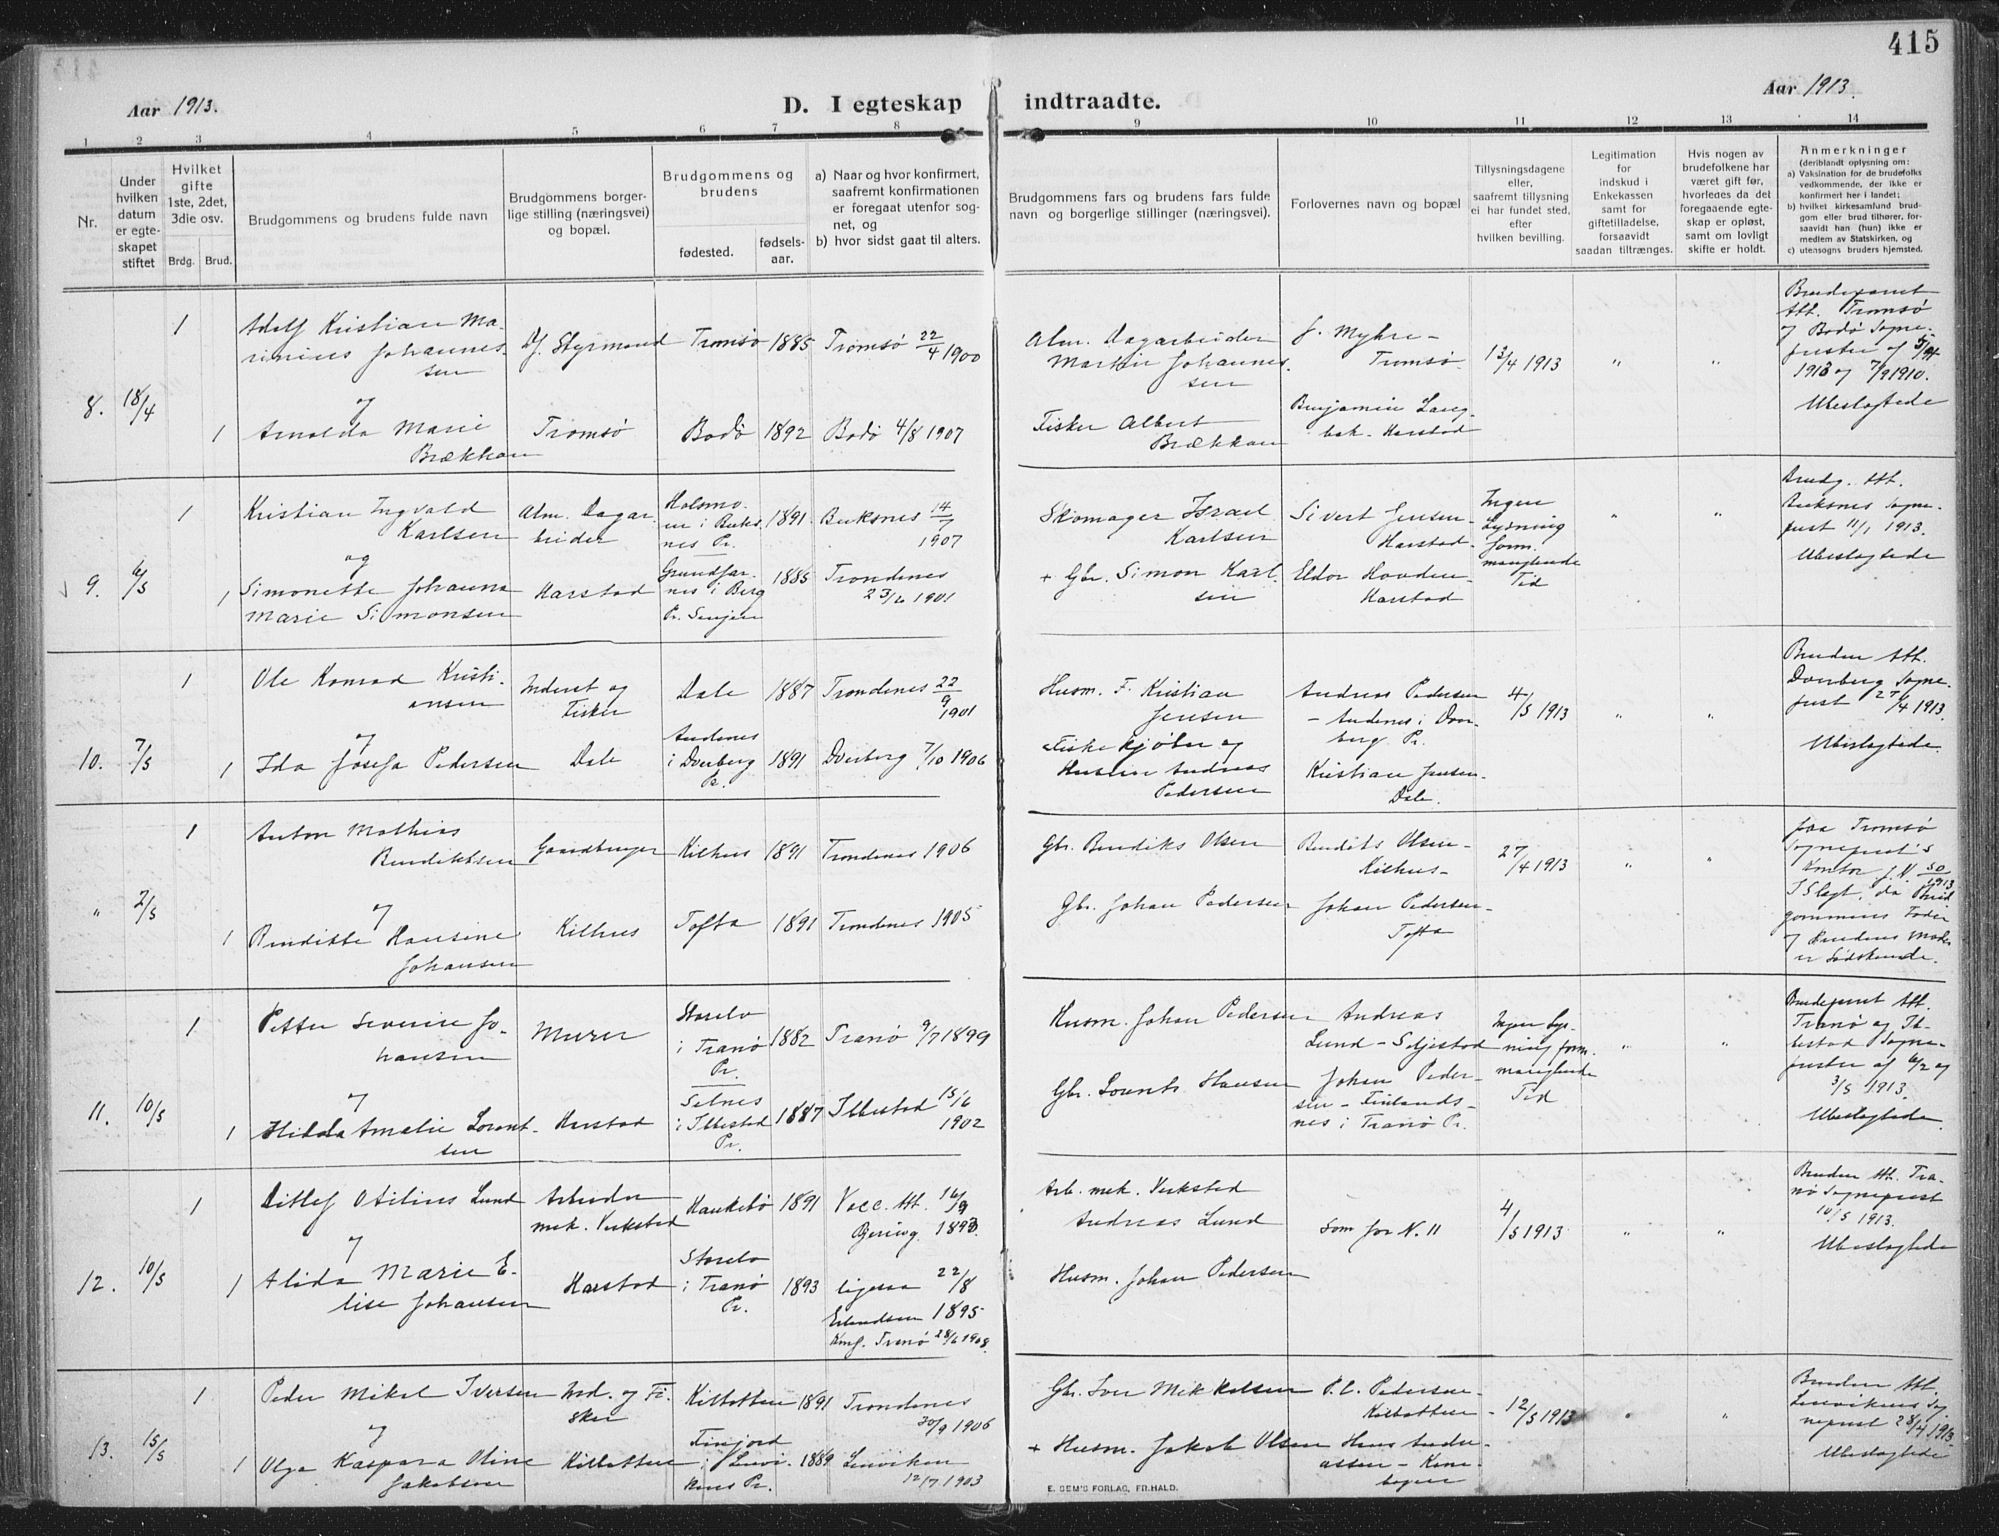 415
Aar 1913.
D. I egteskap indtraadte.
Aar 1913.
1 2 3 4 5 6 7 8 9 10 11 12 13 14
Nr.
Under hvilken datum er egteskapet stiftet
Hvilket gifte 1ste, 2det, 3die osv.
Brdg. Brud.
Brudgommens og brudens fulde navn
Brudgommens borgerlige stilling (næringsvei) og bopæl.
Brudgommens og brudens
fødested.
fødselsaar.
a) Naar og hvor konfirmert, saafremt konfirmationen er foregaat utenfor sognet, og
b) hvor sidst gaat til alters.
Brudgommens fars og brudens fars fulde navn og borgerlige stillinger (næringsvei).
Forlovernes navn og bopæl
Tillysningsdagene eller, saafremt tillysning ei har fundet sted, efter hvilken bevilling.
Legitimation for indskud i Enkekassen samt for giftetilladelse, forsaavidt saadan tiltrænges.
Hvis nogen av brudefolkene har været gift før, hvorledes da det foregaaende egteskap er opløst, samt om lovligt skifte er holdt.
Anmerkninger
(deriblandt oplysning om:
a) Vaksination for de brudefolks vedkommende, der ikke er konfirmert her i landet;
b) hvilket kirkesamfund brudgom eller brud tilhører, forsaavidt han (hun) ikke er medlem av Statskirken, og
c) utensogns bruders hjemsted.
8. 18/4
1
Adolf Kristian Marinius Johannessen
Df. Styrmand
Tromsø 1885
Tromsø 22/4 1900
Alm. Dagarbeider Martin Johannessen
J. Myhre - Tromsø
13/4 1913
" "
Brudeparret Att. Tromsø og Bodø Sogneprester af 5/4 1913 og 7/9 1910.
Ubeslegtede
og
1
Arnolda Marie Brækkan
Tromsø
Bodø 1892
Bodø 4/8 1907
Fisker Albert Brækkan
Benjamin Langbak - Harstad
9. 6/5
1
Kristian Ingvald Karlsen
Alm. Dagarbeider
Buksnes Pr.
1891
Buksnes 14/7 1907
Skomager Israel Karlsen
Sivert Jensen - Harstad
Ingen Lysning form. manglende Tid
" "
Brudg. Att. Buksnes Sogneprest 11/1 1913.
Ubeslegtede
og
1
Simonette Johanna Marie Simonsen
Harstad
i Berg Pr. Senjen
1885
Trondenes 23/6 1901
+ Gbr. Simon Karlsen
Eldor Hovden - Harstad
10. 7/5
1
Ole Konrad Kristiansen
Inderst og Fisker
Dale 1887
Trondenes 22/9 1901
Husm. F. Kristian Jensen
Andreas Pedersen - Andenes i Dverberg Pr.
4/5 1913
" "
Bruden Att. Dverberg Sogneprest 27/4 1913.
Ubeslegtede.
og
1
Ida Josefa Pedersen
Dale
Andenes i Dverberg Pr.
1891
Dverberg 7/10 1906
Fiskekjøber og Husmn Andreas Pedersen
Kristian Jensen - Dale.
" 7/5
1
Anton Mathias Bendiktsen
Gaardbruger
Kilhus 1891
Trondenes 1906
Gbr. Bendiks Olsen
Bendiks Olsen - Kilhus -
27/4 1913
" "
paa Tromsø Sogneprest's Kontor J. N. 50/1913
I Slegt, da Brudgommens Fader og Brudens Moder er Sødskende.
og
1
Benditte Hansine Johansen
Kilhus
Tofta 1891
Trondenes 1905
Gbr. Johan Pedersen
Johan Pedersen - Tofta
11. 10/5
1
Petter Severin Johansen
Murer
i Tranø Pr.
1882
Tranø 9/7 1899
Husm. Johan Pedersen
Andreas Lund - Seljestad
Ingen Lysning form. manglende Tid
" "
Brudeparret Att. Tranø og Ibbestad Sogneprester af 6/2 og 3/5 1913.
Ubeslegtede
og
1
Hilda Amalie Lorentsen
Harstad
Selnes i Ibbestad Pr.
1887
Ibbestad 15/6 1902
Gbr. Lorents Hansen
Johan Pedersen - Finlandsnes i Tranø Pr.
12. 10/5
1
Ditlef Otilius Lund
Arbeider mek. Verksted
1891
Vacc. Att. 16/9 1893.
Arb. mek. Verksted Andreas Lund
som for N. 11
4/5 1913
" "
Bruden Att. Tranø Sogneprest 10/5 1913.
Ubeslegtede
og
1
Alida Marie Elise Johansen
Harstad
i Tranø Pr.
1893
ligesaa 22/8 1895
Erlandsen
Konf. Tranø 28/6 1908.
Husm. Johan Pedersen
13. 15/5
1
Peder Mikal Iversen
Ind. og Fisker
Kilbotten 1891
Trondenes 30/9 1906
Gbr. Iver Mikkelsen
P. C. Pedersen - Kilbotten
12/5 1913
" "
Bruden Att. Lenvikens Sogneprest 28/4 1913.
Ubeslegtede
og
1
Olga Kaspara Oline Jakobsen
Kilbotten
Finfjord i Lenvikens Pr.
1889
Lenviken 12/7 1903
+ Husm. Jakob Olsen
Hans Andreassen -
E. SEM'S FORLAG, FR.HALD.